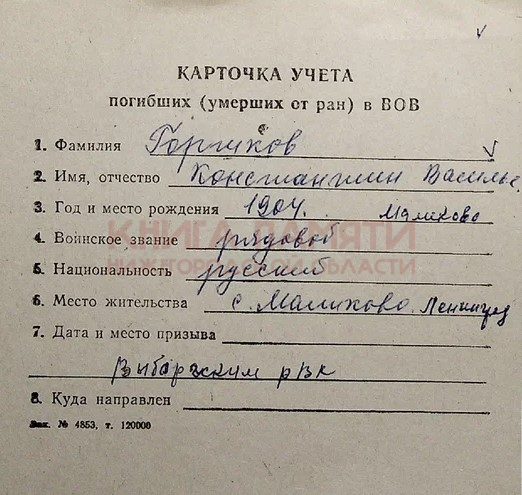 КАРТОЧКА УЧЕТА
погибших (умерших от ран) в ВОВ
1. Фамилия Горшков
2. Имя, отчество Константин Василье
3. Год и место рождения 1904. Маликово
КНИГА ПАМЯТИ
4. Воинское звание рядовой
НИЖЕГОРОДСКОЙ ОБЛАСТИ
5. Национальность русский
6. Место жительства с. Маликово. Ленинград
7. Дата и место призыва
Выборгским рвк
8. Куда направлен
Зак. № 4853, т. 120000